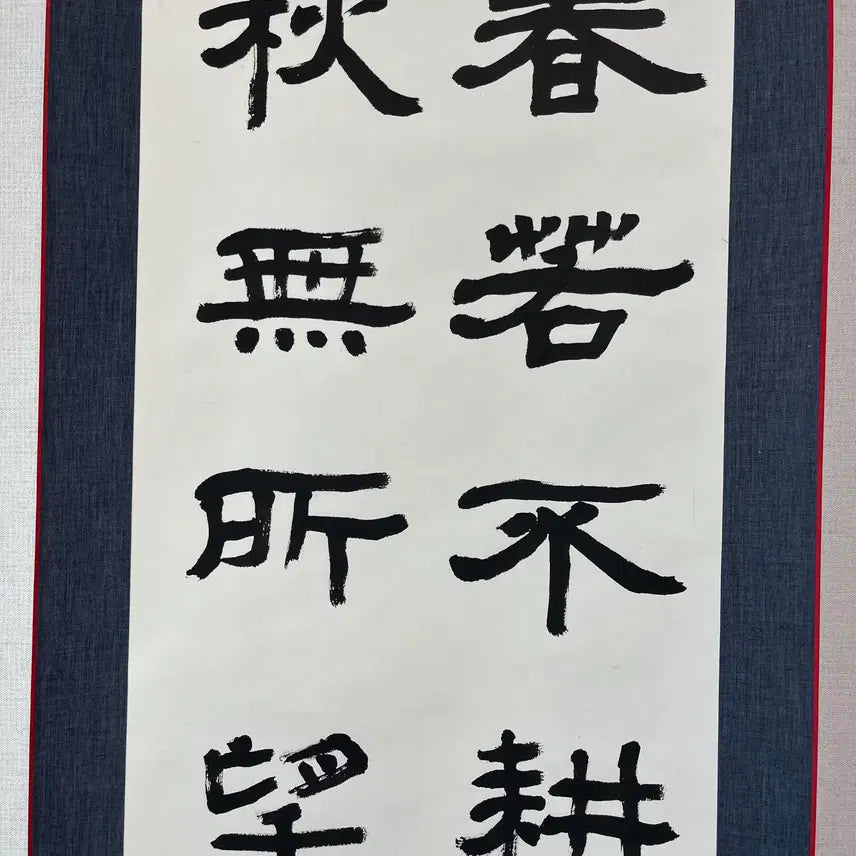 春若不耕
秋無所望